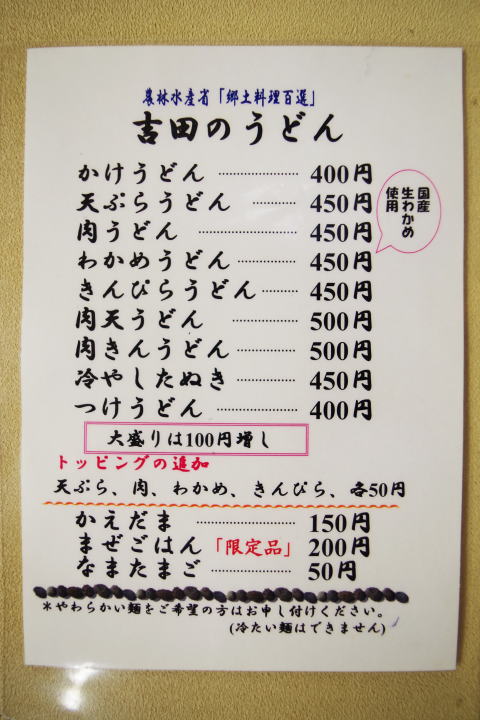 農林水産省「郷土料理百選」
吉田のうどん
かけうどん ………… 400円
天ぷらうどん ……… 450円
肉うどん ………… 450円
わかめうどん ……… 450円
国産
生わかめ
使用
きんぴらうどん …… 450円
肉天うどん ……… 500円
肉きんうどん ……… 500円
冷やしたぬき ……… 450円
つけうどん ………… 400円
大盛りは100円増し
トッピングの追加
天ぷら、肉、わかめ、きんぴら、各50円
かえだま ………… 150円
まぜごはん「限定品」 200円
なまたまご ………… 50円
*やわらかい麺をご希望の方はお申し付けください。
(冷たい麺はできません)